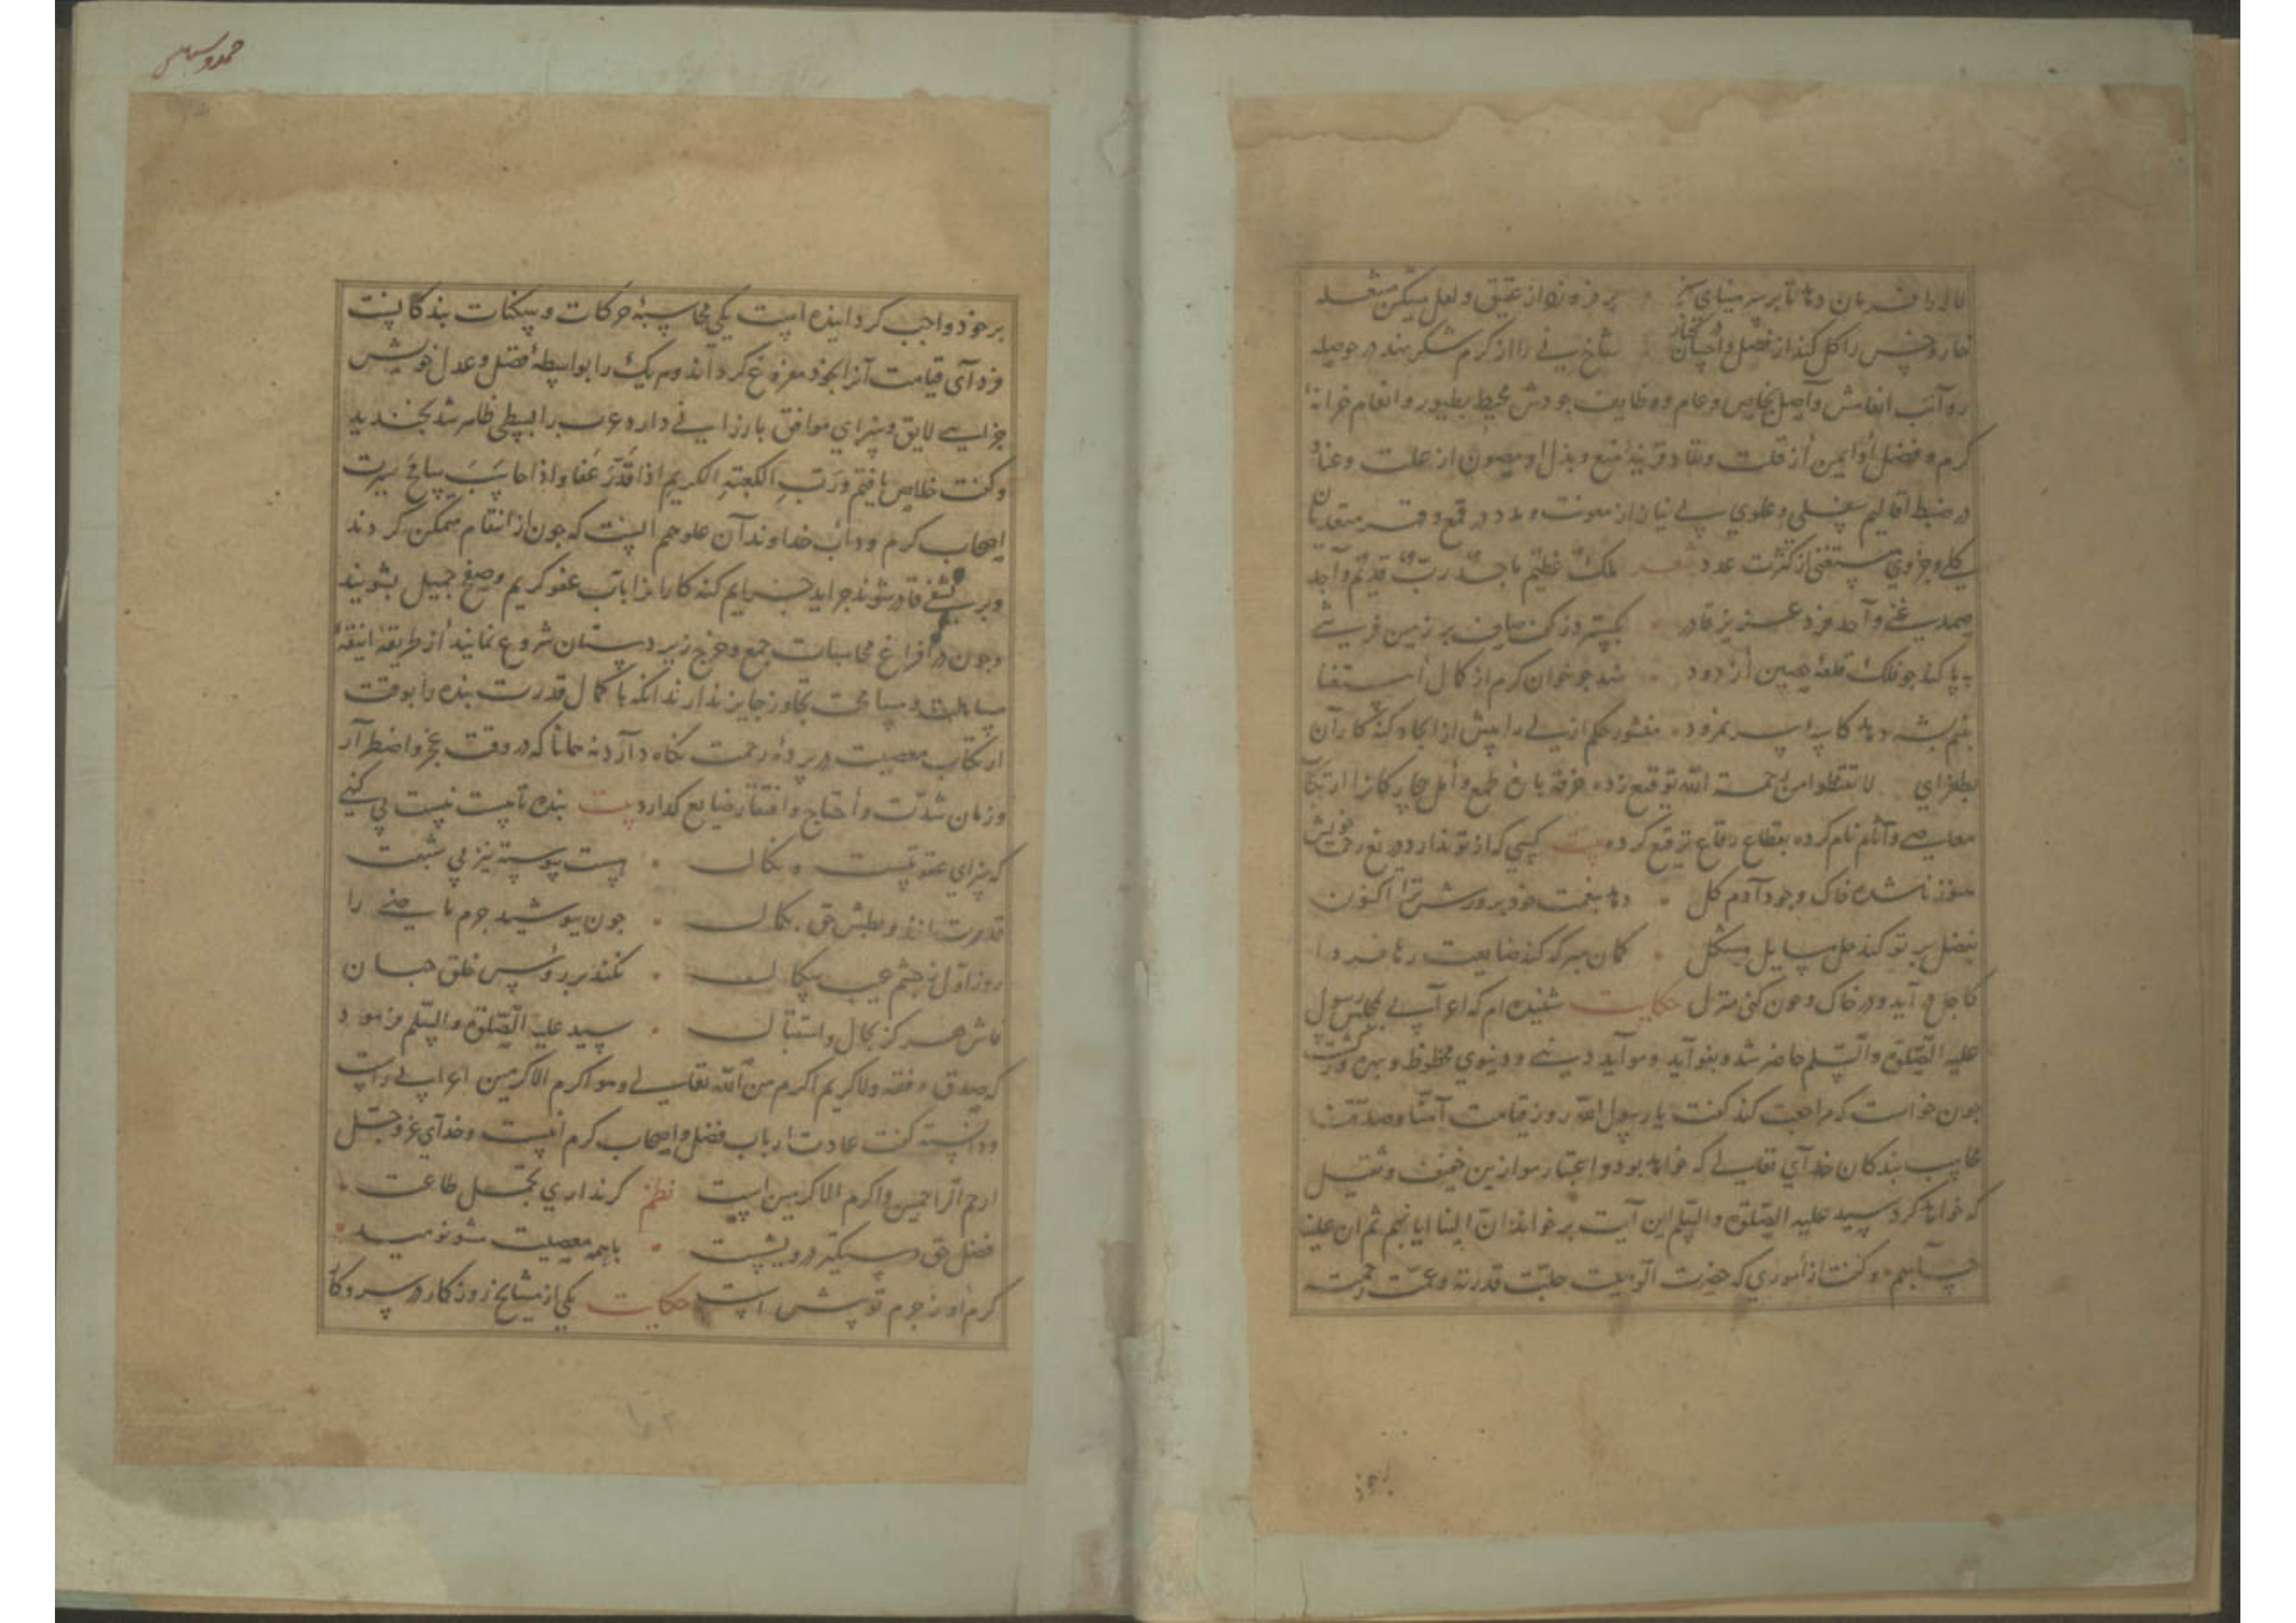 لاله را فرمان دهد تا بر سر مینای سبز بر فروزد از عقیق و لعل مشکین مشعله
خار و خس را گل کند از فضل و احسان شاخ نی را از کرم شکر نهد در حوصله
رواتب انعامش واصل بخاص و عام و وظایف جودش محیط بطیور و انعام خزانهٔ
کرم و فضل او ایمن از قلت و نفاد و قرینهٔ منع و بذل او مصون از علت و عناد
در ضبط اقالیم سفلی و علوی بی نیاز از معونت و مدد در قمع و قهر متعدیان
کلی و جزوی مستغنی از کثرت عدد شعر ملک عظیم ماجد رب قدیم واحد
صمد غنی واحد فرد عزیز قادر بگسترد ز کف صاف بر زمین فرشی
به پا کند چو فلک قلعهٔ حصین از دود شد چو خوان کرم از کمال استغنا
بنیم پشه دهد کاسهٔ سر نمرود منشور حکم ازلی را پیش از ایجاد گنه کاران
بطغرای لا تقنطوا من رحمة الله توقیع زده خرقه
معاصی و آثام نام کرده بقطاع رقاع ترقیع کرده بیت کسی که از تو ندارد دریغ رحمت خویش
هنوز ناشده خاک وجود آدم گل دهد بنعمت خود پرورش ترا اکنون
بفضل بر تو کند حل مسایل مشکل گمان مبر که کند ضایعت رها فردا
کاجل در آید و در خاک و خون کنی منزل حکایت شنیده ام که اعرابی بمجلس رسول
علیه الصلوة والسلم حاضر شد و بفواید و مواید دینی و دنیوی محظوظ و بهره ور گشت
چون خواست که مراجعت کند گفت یا رسول الله روز قیامت آمنا وصدقنا
محاسب بندگان خدای تعالی که خواهد بود و اعتبار موازین خفیف و ثقیل
که خواهد کرد سید علیه الصلوة والسلم این آیت بر خواند ان الینا ایابهم ثم ان علینا
حسابهم و گفت از اموری که حضرت الوهیت جلت قدرته وعمت رحمته
بخود
حمد و سپاس
بر خود واجب گردانیده است یکی محاسبهٔ حرکات و سکنات بندگانست
فردای قیامت آنرا بخود مفروغ گرداند و هر یک را بواسطهٔ فضل و عدل خویش
جزایی لایق و سزای موافق بارزانی دارد عرب را بسطی ظاهر شد بخندید
و گفت خلاص یافتم ورب الکعبة الکریم اذا قدر عفا واذا حاسب سامح سیرت
اصحاب کرم و داب خداوندان علو همم آنست که چون از انتقام متمکن گردند
و بر تشفی قادر شوند جراید جرایم گنه کاران را بآب عفو کریم و صفح جمیل بشویند
و چون در افراغ محاسبات جمع و خرج زیردستان شروع نمایند از طریقهٔ انیقهٔ
مساهلت و مسامحت تجاوز جایز ندارند آنکه با کمال قدرت بنده را بوقت
ارتکاب معصیت در پردهٔ رحمت نگاه دارد نه همانا که در وقت عجز و اضطرار
و زمان شدت و احتیاج و افتقار ضایع گذارد بیت بنده تا هست نیست بی گنهی
که سزای عقوبتست و نکال هست پیوسته نیز بی شبهت
قدرت ایزد و بطش حق بکمال چون بپوشید جرم ماضی را
روز اول ز چشم عیب سگال نکند بر رؤس خلق جهان
فاش هرگز بحال و استقبال سید علیه الصلوة والسلم فرمود
که صدق وفقه ولا کریم اکرم من الله تعالی وهو اکرم الاکرمین اعرابی راست
و دانسته گفت عادت ارباب فضل و اصحاب کرم اینست و خدای عز وجل
ارحم الراحمین و اکرم الاکرمین است نظم گر نداری تحمل طاعت
فضل حق دستگیر درویشست با همه معصیت مشو نومید
کرم او ز جرم تو بیش است حکایت یکی از مشایخ روزگار در سر و کار